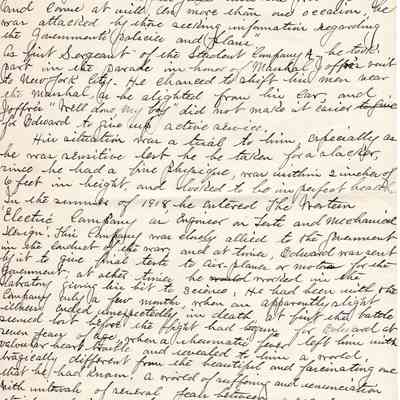 and come at will. On more than one occasion, he
was attacked by those seeking information regarding
the Governments policies and plans.
As first Sergeant of the Student Company, he took
part in the parade in honor of Marshal Joffre's visit
to New York City. He chanced to shift his men near
the Marshal, as he alighted from his car, and
Joffre's "Well done my boy" did not make it easier
for Edward to give up active service.
His situation was a trial to him, especially as
he was sensitive lest he be taken for a slacker,
since he had a fine physique, was within 2 inches of
6 feet in height, and looked to be in perfect health.
In the summer of 1918 he entered The Western
Electric Company as Engineer on Tests and Mechanical
Design. This Company was closely allied to the Government
in the conduct of the war, and at times, Edward was sent
by it to give final tests to air-planes or motors for the
Government; at other times, he worked in the
Laboratory giving his bit to Science. He had been with the
Company only a few months, when an apparently slight
illness ended unexpectedly in death. At first the battle
seemed lost before the fight had begun, for Edward at
seven years of age, when a rheumatic fever left him with
valvular heart trouble and revealed to him a world,
tragically different from the beautiful and fascinating one
that he had known. A world of suffering and renunciation
with intervals of several years between